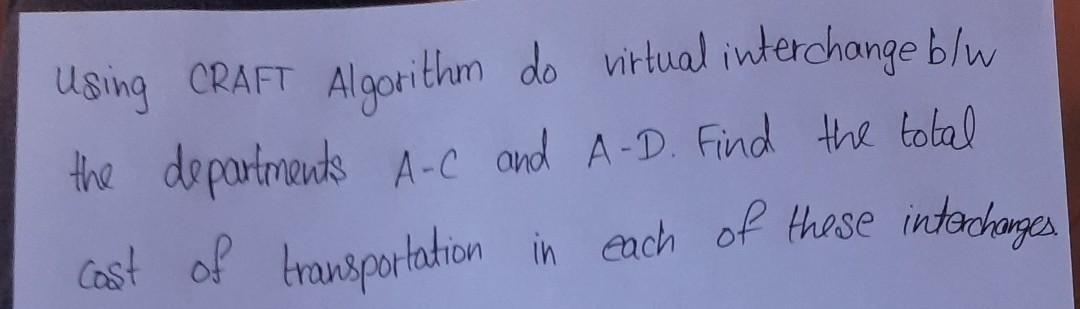 Using CRAFT Algorithm do virtual interchange b/w
the departments A-C and A-D. Find the total
Cost of transportation in each of these interchanges.